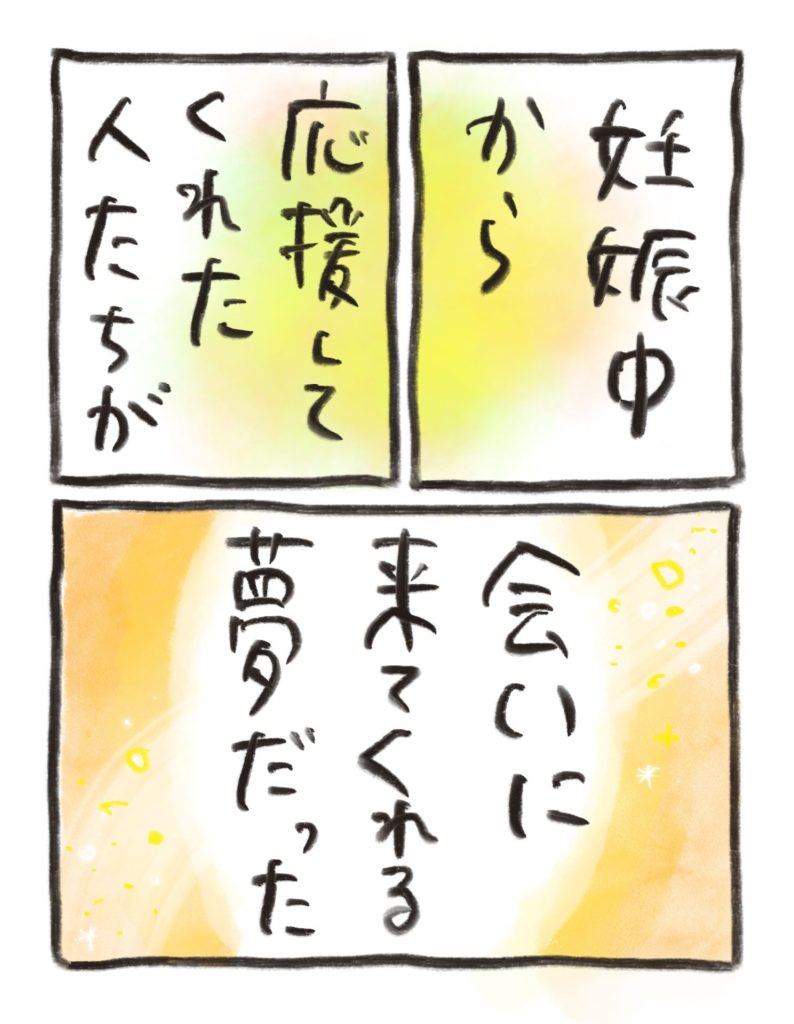 妊娠中
から
応援して
くれた
人たちが
会いに
来てくれる
夢だった